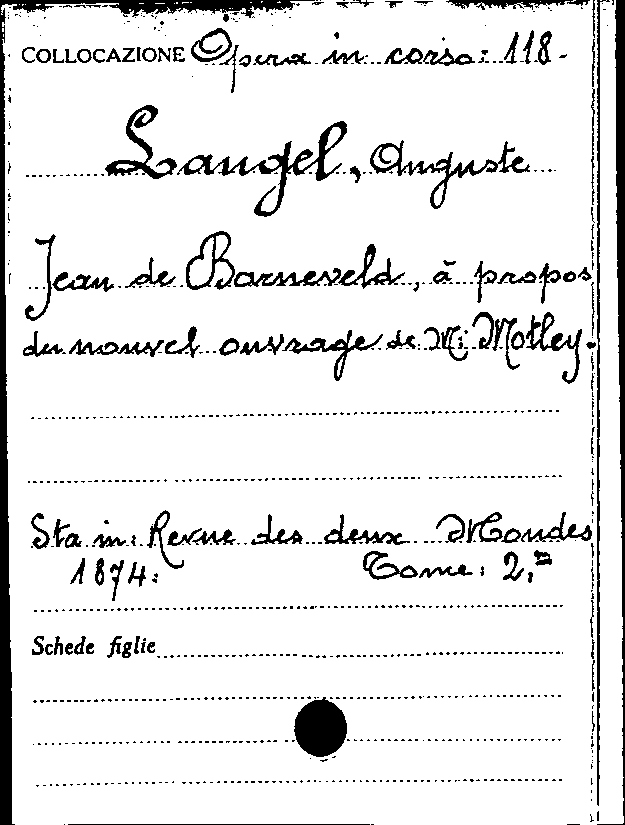 COLLOCAZIONE Opera in corso: 118.
Laugel, Auguste
Jean de Barneveld, à propos
du nouvel ouvrage de M: Motley.
Sta in: Revue des deux Mondes
1874: Tome: 2,=
Schede figlie